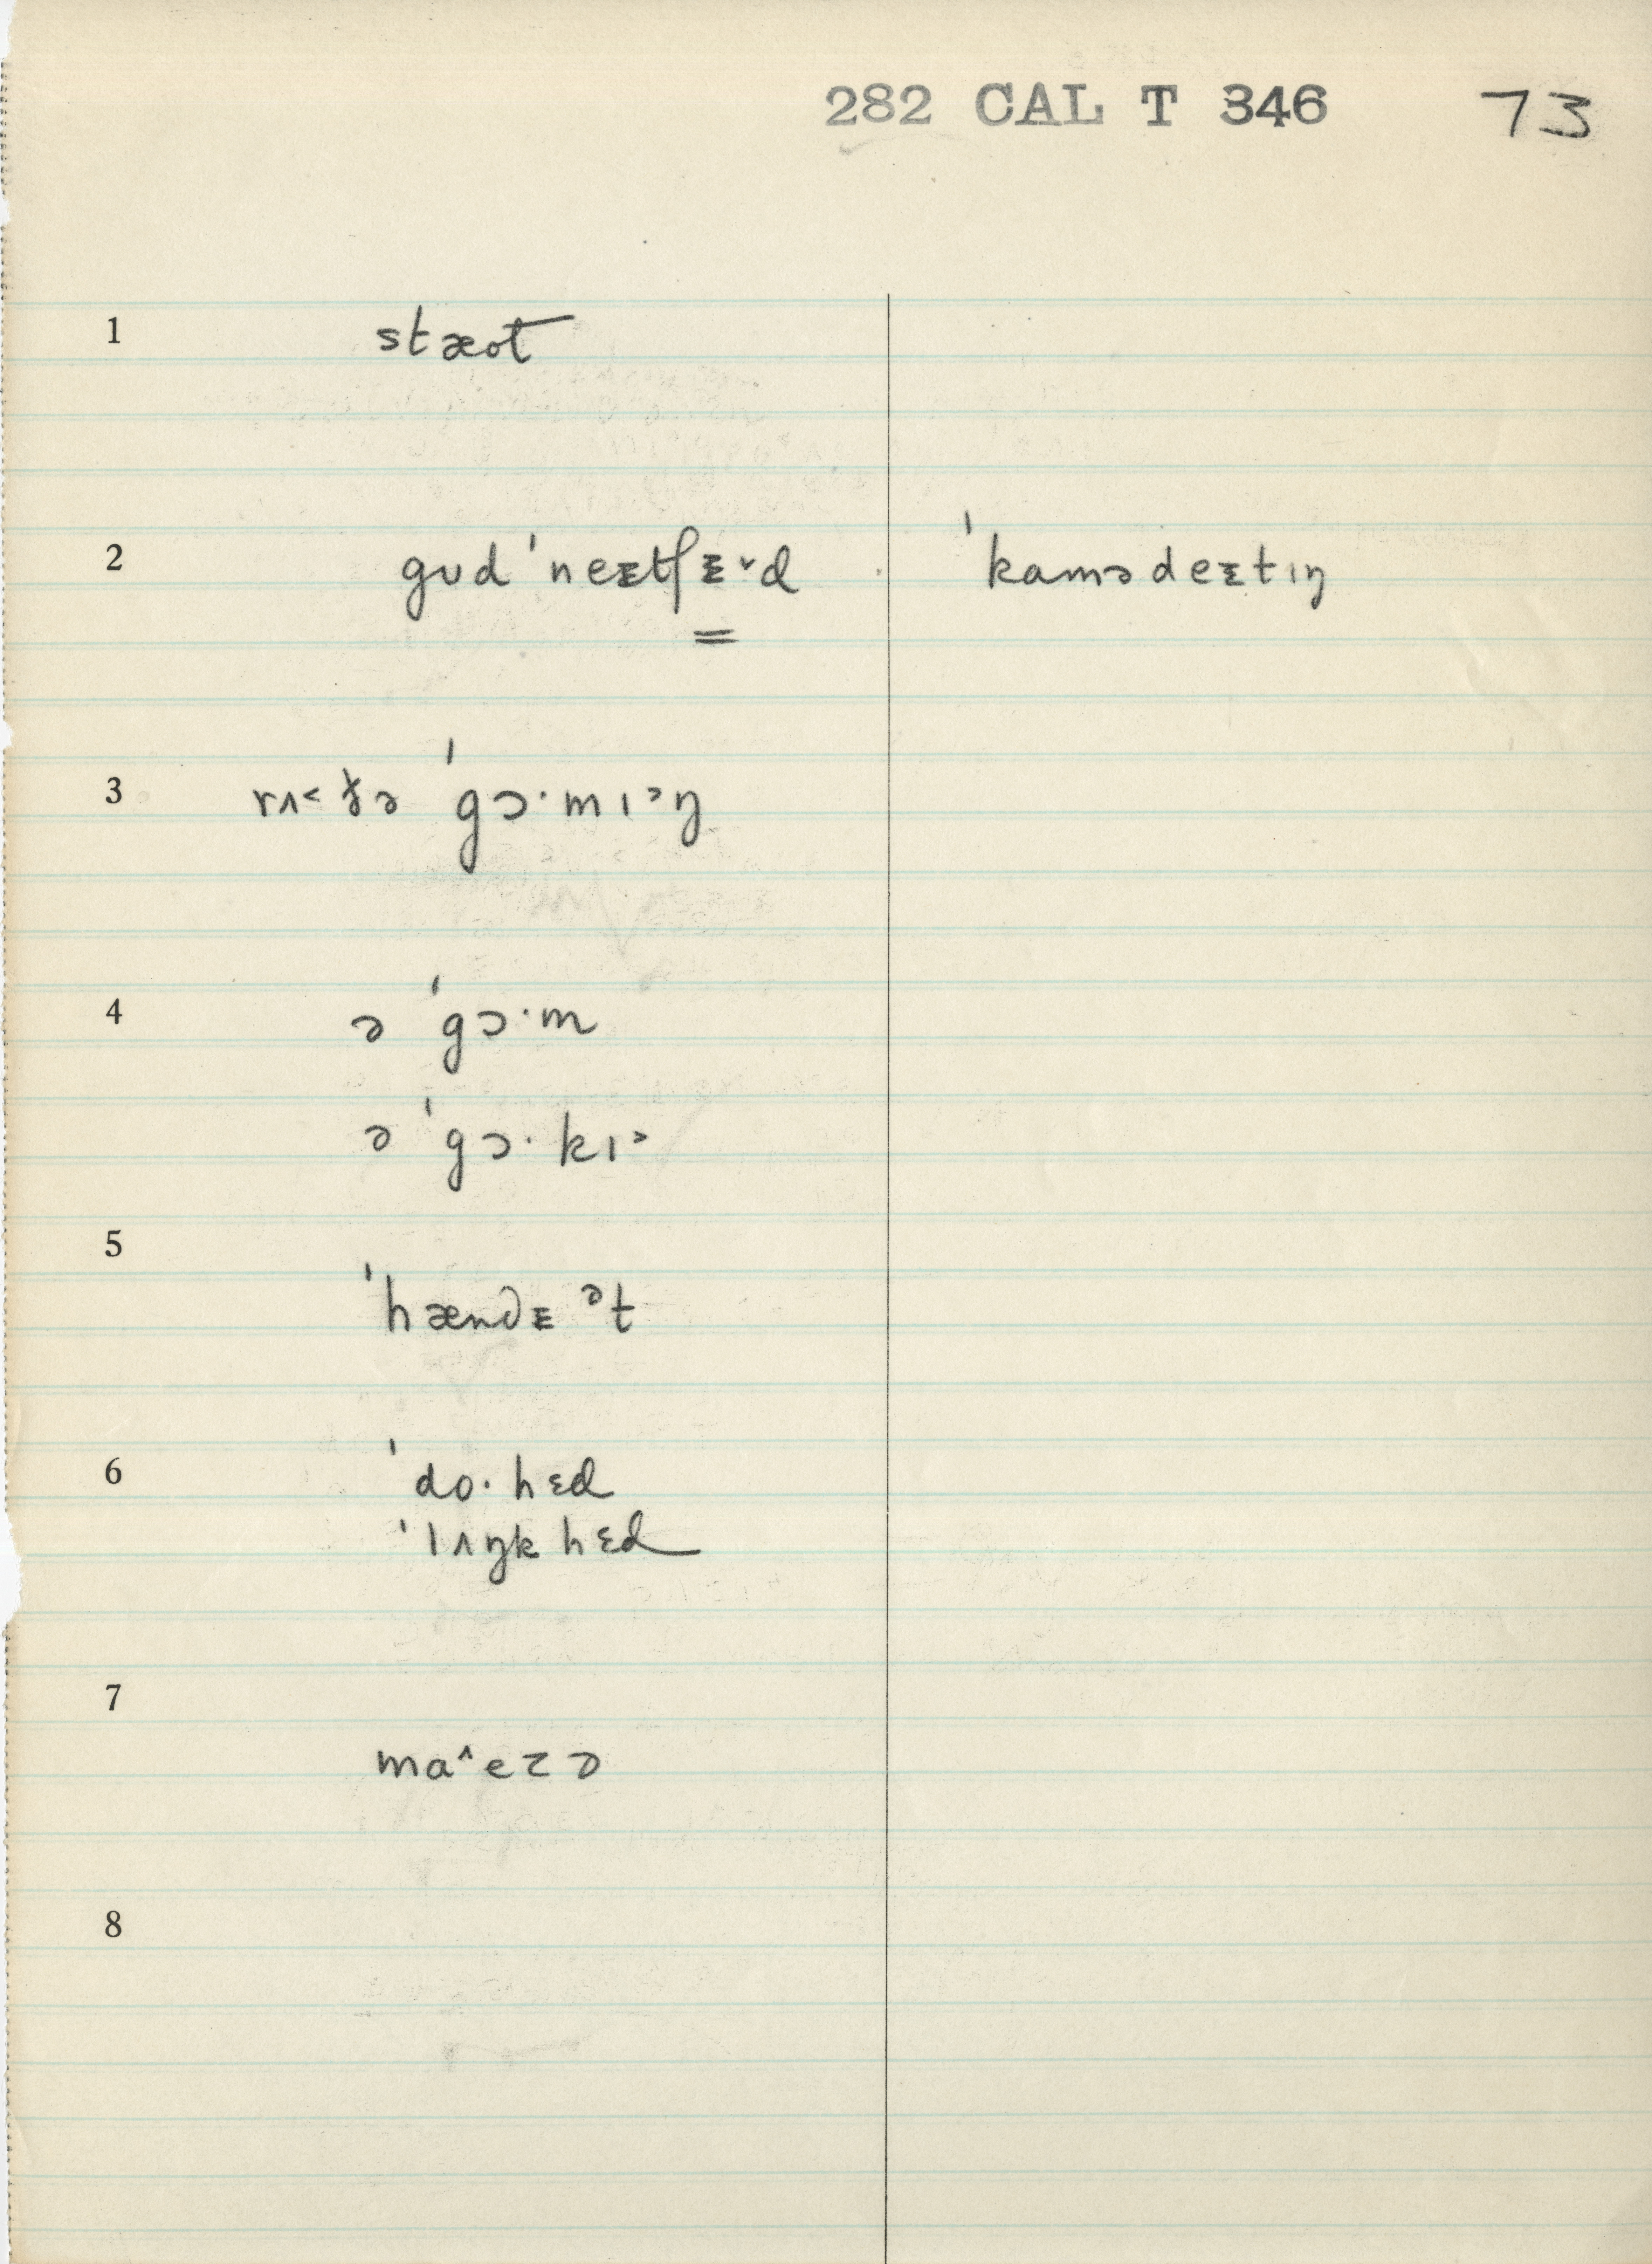 282 CAL T 346 73
1 stæot
2 gʊd ˈneᴇtʃᴇ˅d ˈkamədeᴇtɪŋ
3 rʌ˂ðə ˈgɔ·mɪᵊŋ
4 ə ˈgɔ·m
ə ˈgɔ·kɪᵊ
5
ˈhændᴇ ᵊt
6 ˈdo·hɛd
ˈlʌŋkhɛd
7
ma^ezə
8